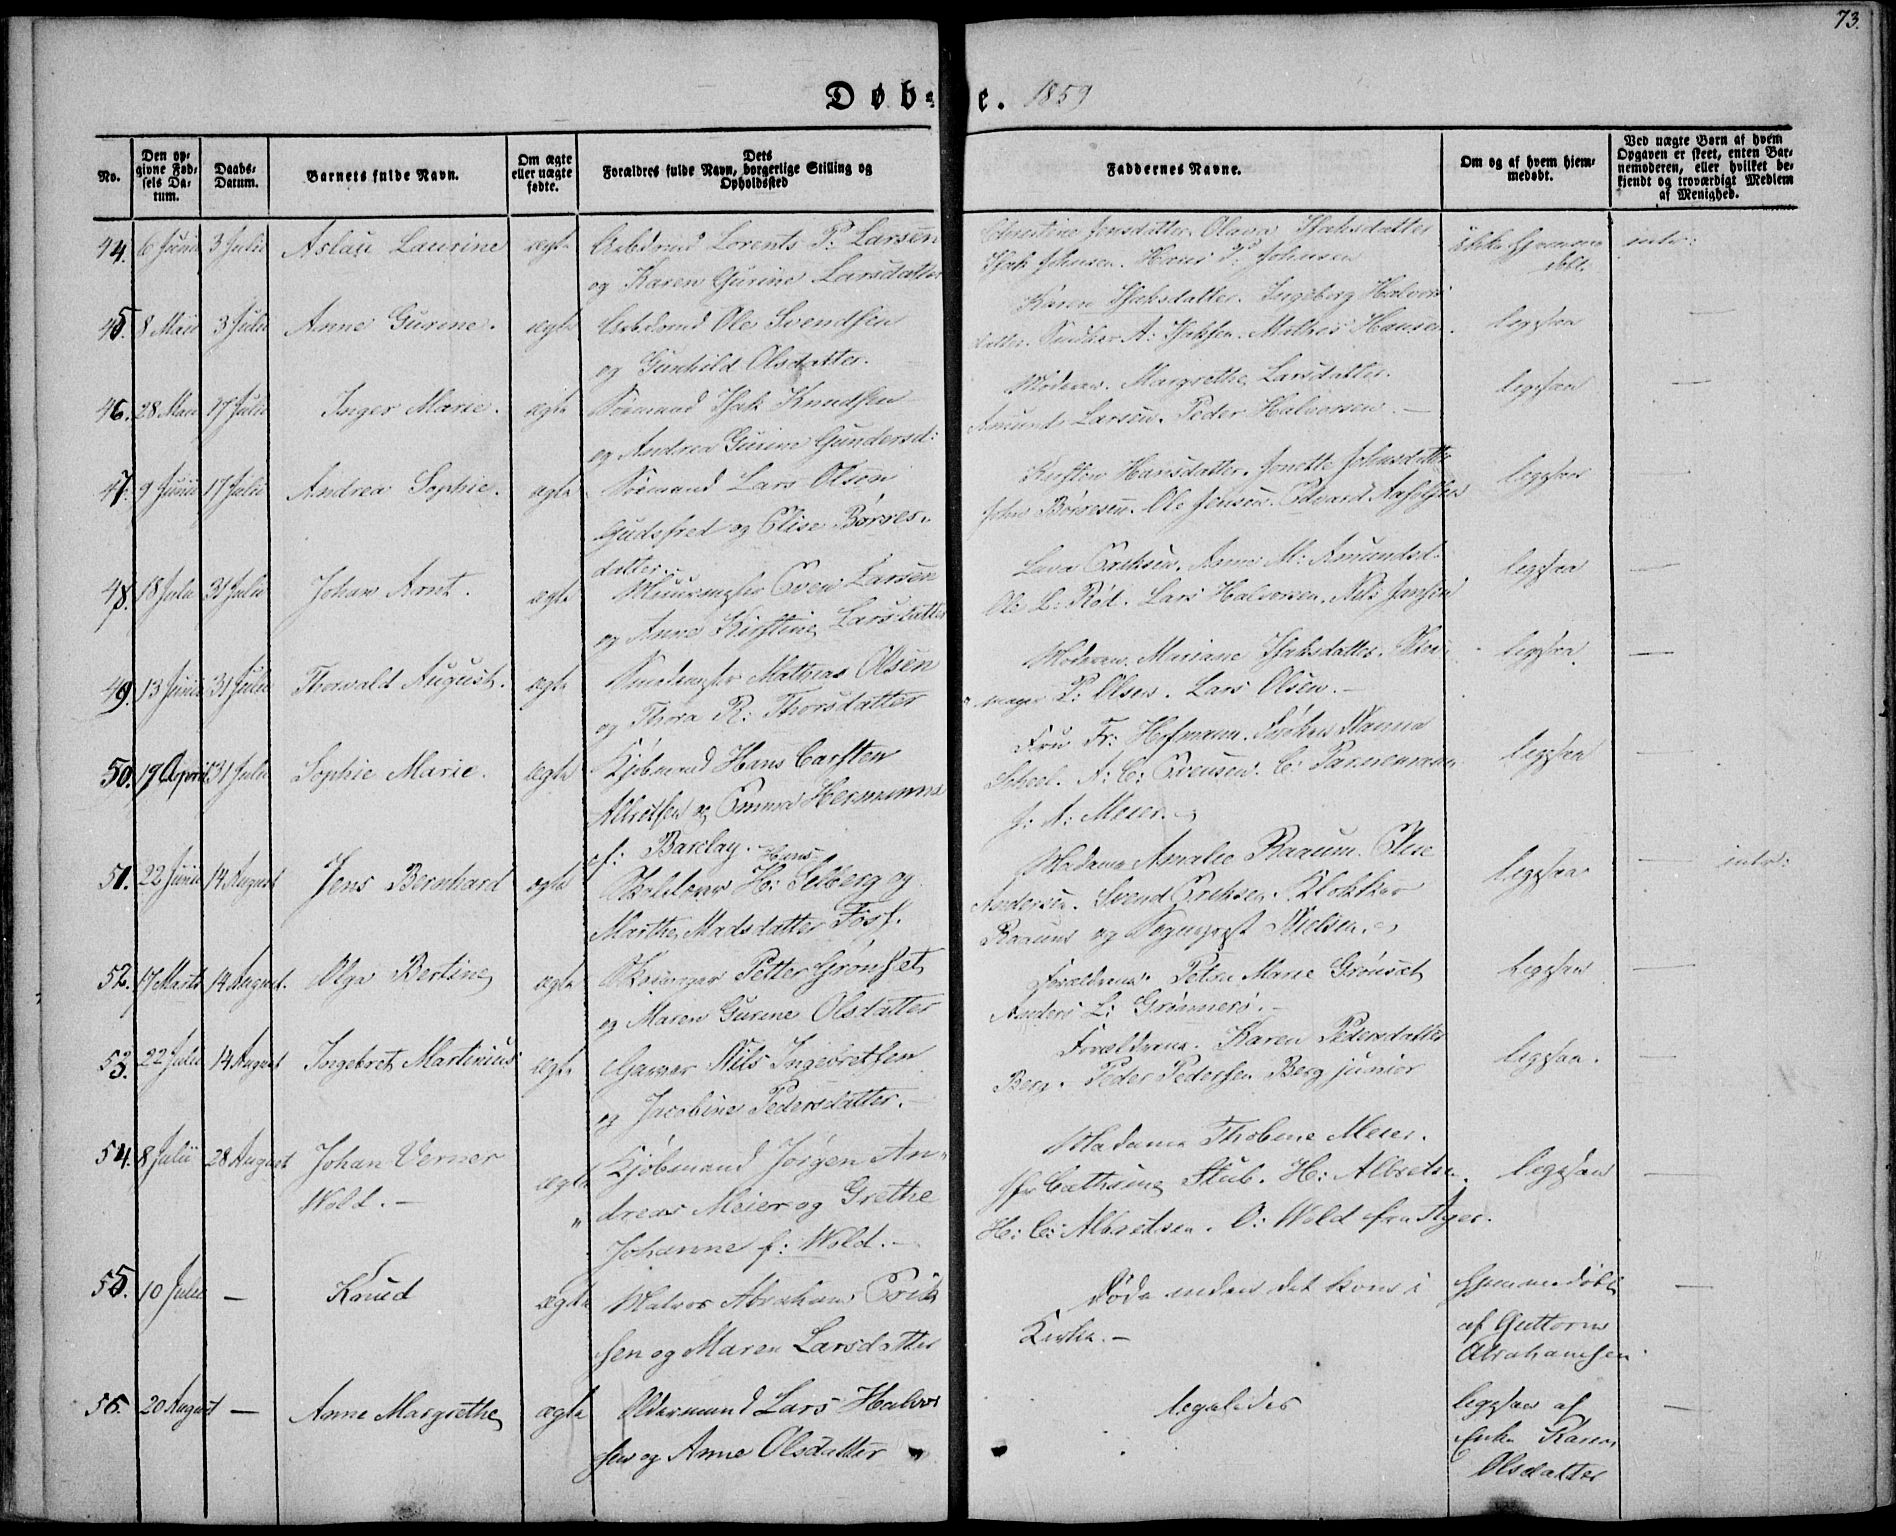 73.
Døb-te. 1859
No.
Den opgivne Fødsels Datum.
Daabs-Datum.
Barnets fulde Navn.
Om ægte eller uægte fødte.
Dets Forældres fulde Navn, borgerlige Stilling og Opholdssted
Faddernes Navne.
Om og af hvem hjemmedøbt.
Ved uægte Børn af hvem Opgaven er skeet, enten Barnemoderen, eller hvilket bekjendt og troværdigt Medlem af Menighed.
44. 6 Junii 3 Julii Aslau Laurine ægte Arbdmd Lorents P: Larsen
og Karen Gurine Larsdatter
Christine Jensdatter Olava Isaksdatter
Isak Johnsen. Hans P: Johnsen
ikke hjemme
døbt.
intr:
45. 8 Mai 3 Julii Anne Gurine. ægte Arbdmd Ole Svendsen
og Gunhild Olsdatter.
Karen Isaksdatter. Ingeborg Halvors
datter. A: Isaksen. Mathis Hansen.
ligesaa —
46. 28 Mai 17 Julii Inger Marie. ægte Sømand Isak Knudsen
og Andrea Gurine Gundersd:
Moderen. Margrethe Larsdatter.
Amund Larsen. Peder Halvorsen. —
ligesaa —
47. 9 Junii 17 Julii Andrea Sophie. ægte Sømand Lars Olsen
Gudsfred og Elise Børres-
datter.
Kirsten Hansdatter. Jonette Johnsdatter
John Børresen. Ole Jensen. Edvard
ligesaa —
48. 18 Julii 31 Julii Johan Arnt. ægte Muurmester Even Larsen
og Anne Kirstine Larsdatter
Lava Eriksen. Anne M: Amundsd.
Ole L: Røl. Lars Halvorsen. Nils Jansen
ligesaa —
49. 13 Junii 31 Julii Thorvald August. ægte Mathias Olsen
og Thora R: Thorsdatter
Moderen. Mariane Isaksdatter. Skoe-
mager P: Olsen. Lars Olsen. —
ligesaa —
50. 17 April 31 Julii Sophie Marie. ægte Kjøbmand Hans Carsten
Albretsen og Emma Hermanna
f: Barclay.
Fru Fr: Hofmann. Frøken Nanna
Scheel. A: C: Evensen. C: Pannemann
J: A: Meier.
ligesaa —
51. 22 Junii 14 August Jens Bernhard ægte Skolelærer Hans H: Selberg og
Marthe Madsdatter Foss.
Madame Amalie Raaum. Elise
Andersen. Svend Eriksen. Klokker
Raaum og Sognepræst Nielsen.
ligesaa — intr:
52. 17 Marts 14 August. Olga Bertine ægte Petter Grønset
og Maren Gurine Olsdatter
Forældrene. Petra Marie Grønset
Anders L: Grønnerø. —
ligesaa —
53. 22 Julii 14 August Ingebret Martinius ægte Garver Nils Ingebretsen
og Jacobine Pedersdatter. —
Forældrene. Karen Pedersdatter
Berg. Peder Pedersen Berg junior
ligesaa. —
54. 8 Julii 28 August Johan Verner
Wold. — ægte Kjøbmand Jørgen An-
dreas Meier og Grethe
Johanne f: Wold. —
Madame Thobine Meier.
Jfr Cathrine Stub. H: Albretsen.
H: C: Albretsen. O: Wold fra Ager.
ligesaa —
55. 10 Julii — Knud ægte Matros Abraham Erik
sen og Maren Larsdatter
Døde inden det kom i
Kirke. —
Hjemmedøbt
af Guttorm
Abrahamsen.
—
56. 20 August — Anne Margrethe ægte Oldermand Lars Halvor
sen og Anne Olsdatter
ligeledes
ligesaa af
Enke Karen
Olsdatter
—